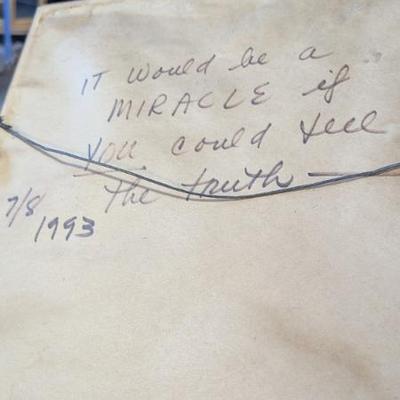 IT would be a
MIRACLE if
you could tell
the truth —
7/8
1993